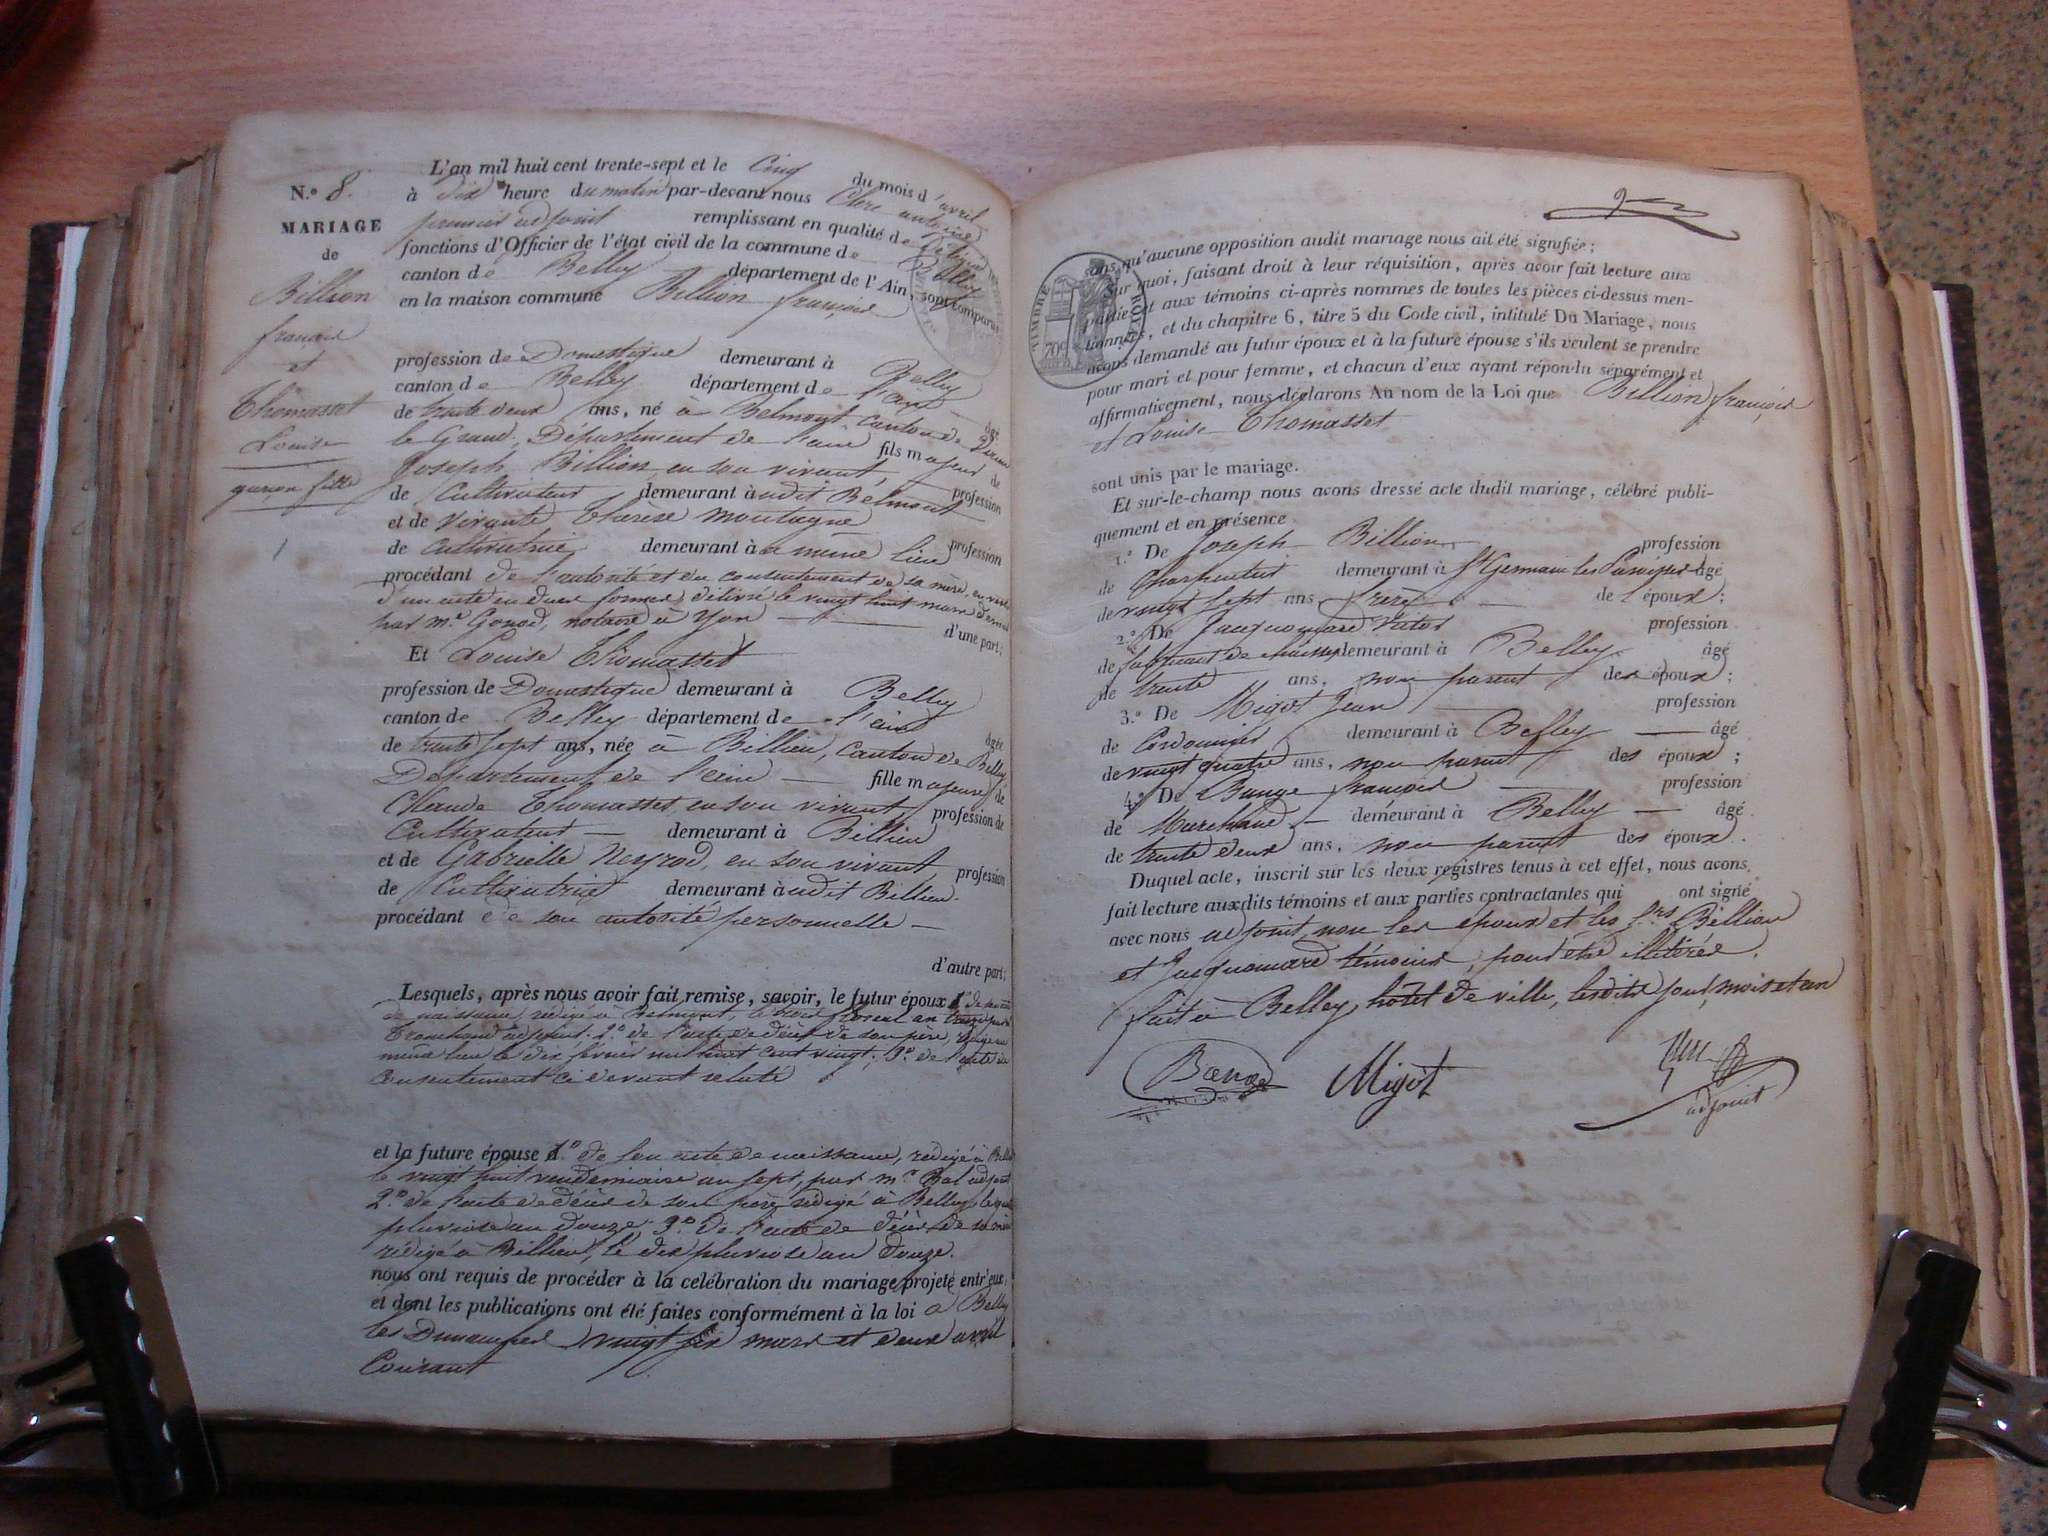 N.o 8.
MARIAGE
de
Billion
françois
et
Thomasset
Louise
garçon fille
L'an mil huit cent trente-sept et le Cinq du mois d'avril
à dix heure du matin par-devant nous Clerc antoine
premier adjoint remplissant en qualité de
fonctions d'Officier de l'état civil de la commune de Belley
canton de Belley département de l'Ain, sont comparus
en la maison commune Billion françois
profession de Domestique demeurant à Belley
canton de Belley département de l'ain âgé
de trente deux ans, né à Belmont Canton de Virieu
le Grand, Département de l'ain fils majeur de
Joseph Billion en son vivant, profession
de Cultivateur demeurant audit Belmont
et de vivante Thérèse Montagne profession
de Cultivatrice demeurant au même lieu
procédant de l'autorité et du consentement de sa mère, en vertu
d'un acte en due forme, délivré le vingt huit mars dernier
par m.e Gonod, notaire à Yon d'une part;
Et Louise Thomasset
profession de Domestique demeurant à Belley
canton de Belley département de l'ain âgée
de trente sept ans, née à Billieu, Canton de Belley
Département de l'ain fille majeure de
Claude Thomasset, en son vivant profession de
Cultivateur demeurant à Billieu
et de Gabrielle Neyrod, en son vivant profession
de Cultivatrice demeurant audit Billieu.
procédant de son autorité personnelle
d'autre part;
Lesquels, après nous avoir fait remise, savoir, le futur époux 1.o de son acte
de naissance, rédigé à Belmont, le trois floréal an treize par
adjoint. 2.o de l'acte de décès de son père, rédigé au
même lieu le dix février mil huit cent vingt; 3.o de l'acte de
consentement ci devant relaté
et la future épouse 1.o de son acte de naissance, rédigé à
le vingt huit vendemiaire an sept, par m.r Bal adjoint
2.o de l'acte de décès de son père rédigé à Belley, le
pluviose an Douze. 3.o de l'acte de décès de sa mère
rédigé à Billieu, le dix pluviose an Douze.
nous ont requis de procéder à la celébration du mariage projeté entr'eux,
et dont les publications ont été faites conformément à la loi à Belley
les Dimanches vingt six mars et deux avril
Courant
TIMBRE ROYAL
70c
sans qu'aucune opposition audit mariage nous ait été signifiée;
Sur quoi, faisant droit à leur réquisition, après avoir fait lecture aux
parties et aux témoins ci-après nommes de toutes les pièces ci-dessus men-
tionnés, et du chapitre 6, titre 5 du Code civil, intitulé Du Mariage, nous
avons demandé au futur époux et à la future épouse s'ils veulent se prendre
pour mari et pour femme, et chacun d'eux ayant répondu séparément et
affirmativement, nous déclarons Au nom de la Loi que Billion françois
et Louise Thomasset
sont unis par le mariage.
Et sur-le-champ nous avons dressé acte dudit mariage, célébré publi-
quement et en présence
1.o De Joseph Billion profession
de Charpentier demeurant à St Germain les Paroisses âgé
de vingt sept ans frère de l'époux;
2.o De Jacquomard Victor profession
de demeurant à Belley. âgé
de trente ans, non parent des époux;
3.o De Migot Jean profession
de Cordonnier demeurant à Belley âgé
de vingt quatre ans, non parent des époux;
4.o De Bange françois profession
de Marchand demeurant à Belley âgé
de trente deux ans, non parent des époux.
Duquel acte, inscrit sur les deux registres tenus à cet effet, nous avons
fait lecture auxdits témoins et aux parties contractantes qui ont signé
avec nous adjoint, non les époux et les Srs Billion
et Jacquomard témoins, pour être illitérés.
fait à Belley, hôtel de ville, lesdits jour, mois et an
Bange Migot
adjoint